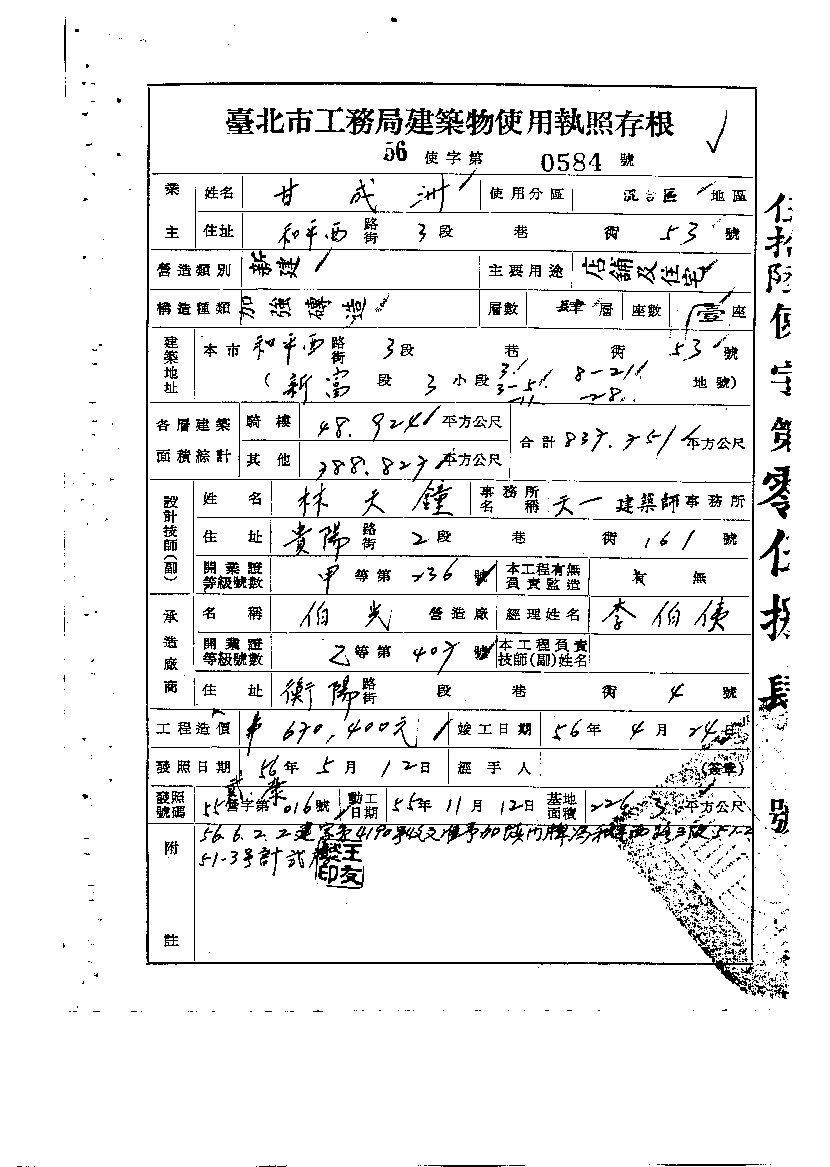 臺北市工務局建築物使用執照存根
56 使字第 0584 號
業主 姓名 甘成洲 使用分區 混合區 地區
住址 和平西 路街 3 段 巷 衖 53 號
營造類別 新建 主要用途 店舖及住宅
構造種類 加強磚造 層數 肆 層 座數 壹 座
建築地址 本市 和平西 路街 3 段 巷 衖 53 號
( 新富 段 3 小段 8-21 地號)
各層建築面積綜計 騎樓 48.924 平方公尺 合計 837.751 平方公尺
其他 平方公尺
設計技師(副) 姓名 林天鐘 事務所名稱 天一 建築師事務所
住址 貴陽 路街 2 段 巷 衖 161 號
開業證等級號數 甲 等第 236 號 本工程有無負責監造 有 無
承造廠商 名稱 伯光 營造廠 經理姓名 李伯
開業證等級號數 乙 等第 407 號 本工程負責技師(副)姓名
住址 衡陽 路街 段 巷 衖 4 號
工程造價 670,400元 竣工日期 56 年 4 月 24 日
發照日期 56 年 5 月 12 日 經手人 (簽章)
發照號碼 55 營字第 016 號 動工日期 55 年 11 月 12 日 基地面積 226.3 平方公尺
附註 56.6.2.
51-3號計
伍拾陸使字第零伍捌肆號